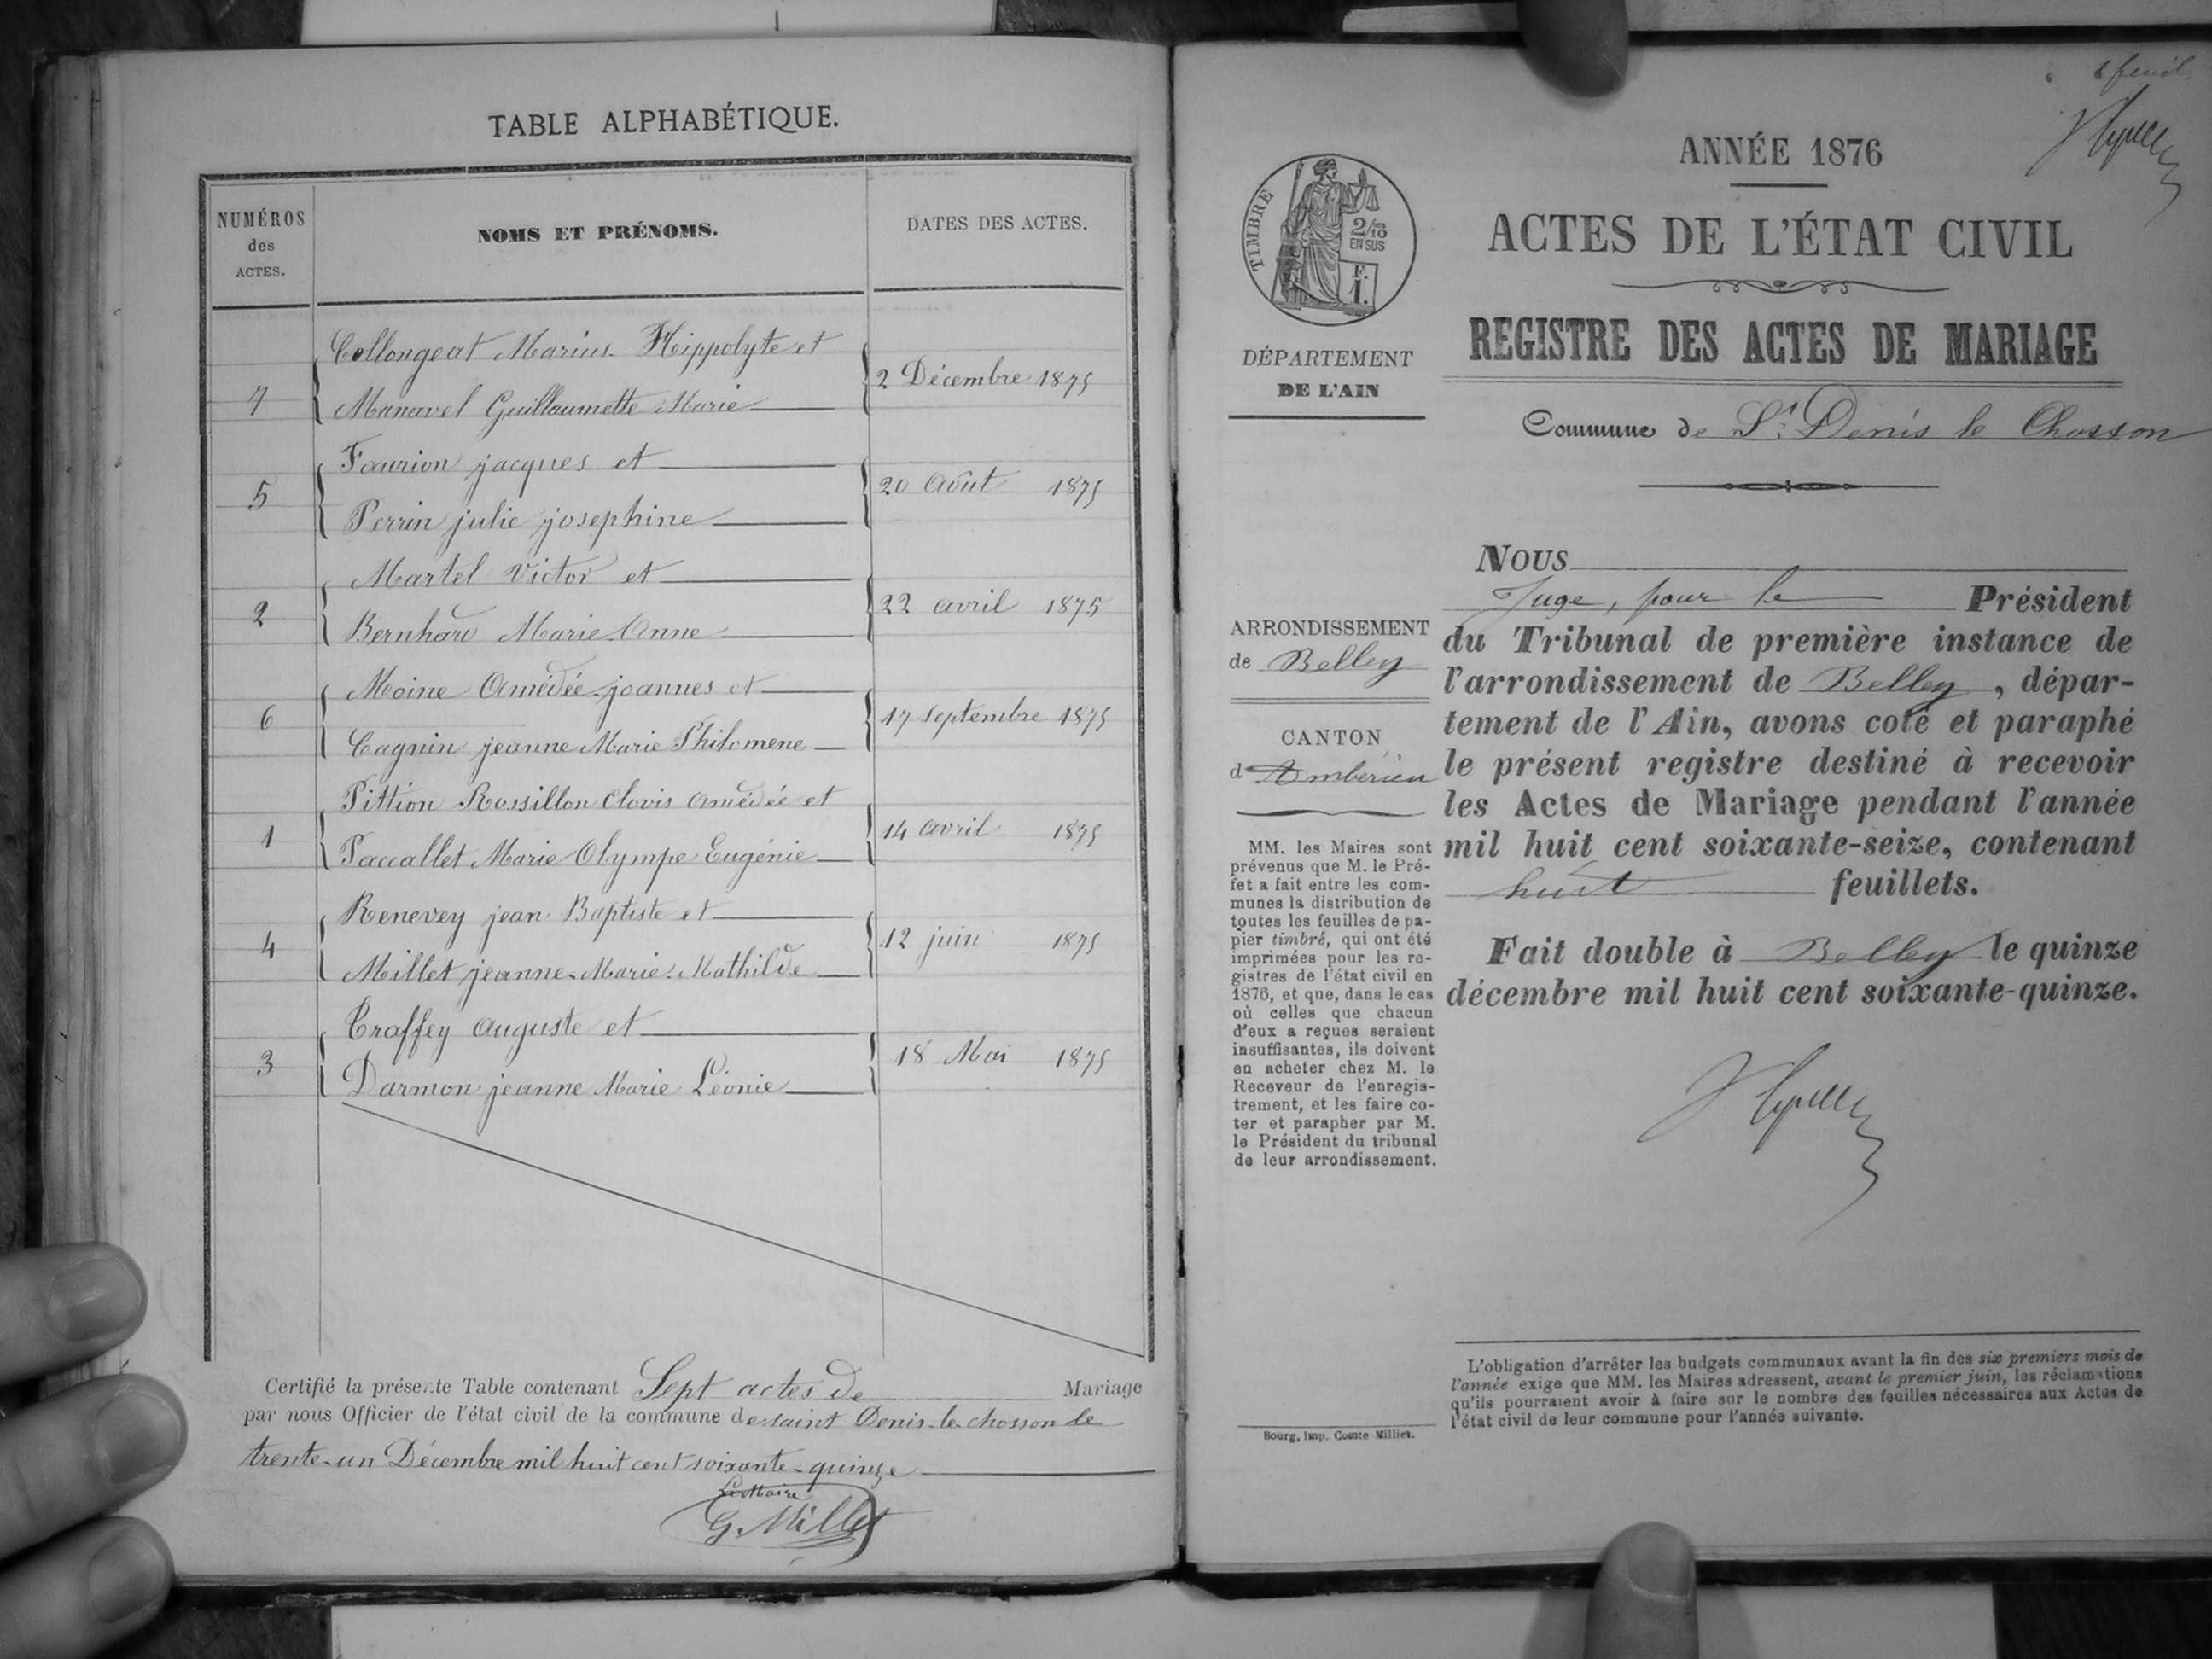 TABLE ALPHABÉTIQUE.
NUMÉROS
des
ACTES.
NOMS ET PRÉNOMS.
DATES DES ACTES.
Collongeat Marius Hippolyte et
7
2 Décembre 1875
Manavel Guillaumette Marie
Faurion jacques et
5
20 Août 1875
Perrin julie josephine
Martel Victor et
2
22 avril 1875
Bernhard Marie Anne
Moine Amédée joannes et
6
17 septembre 1875
Cagnin jeanne Marie Philomene
Pittion Rossillon Clovis Amédée et
1
14 avril 1875
Paccallet Marie Olympe Eugénie
Renevey jean Baptiste et
4
12 juin 1875
Millet jeanne Marie Mathilde
Traffey Auguste et
3
18 Mai 1875
Darmon jeanne Marie Léonie
Certifié la présente Table contenant Sept actes de Mariage
par nous Officier de l'état civil de la commune de saint Denis-le-chosson le
trente-un Décembre mil huit cent soixante-quinze
Le Maire
G. Millet
8 feuil
ANNÉE 1876
ACTES DE L'ÉTAT CIVIL
REGISTRE DES ACTES DE MARIAGE
Commune de St Denis le Chosson
TIMBRE
2/10
EN SUS
F.
1.
DÉPARTEMENT
DE L'AIN
ARRONDISSEMENT
de Belley
CANTON
d'Ambérieu
MM. les Maires sont
prévenus que M. le Pré-
fet a fait entre les com-
munes la distribution de
toutes les feuilles de pa-
pier timbré, qui ont été
imprimées pour les re-
gistres de l'état civil en
1876, et que, dans le cas
où celles que chacun
d'eux a reçues seraient
insuffisantes, ils doivent
en acheter chez M. le
Receveur de l'enregis-
trement, et les faire co-
ter et parapher par M.
le Président du tribunal
de leur arrondissement.
Nous
Juge, pour le Président
du Tribunal de première instance de
l'arrondissement de Belley, dépar-
tement de l'Ain, avons coté et paraphé
le présent registre destiné à recevoir
les Actes de Mariage pendant l'année
mil huit cent soixante-seize, contenant
huit feuillets.
Fait double à Belley le quinze
décembre mil huit cent soixante-quinze.
L'obligation d'arrêter les budgets communaux avant la fin des six premiers mois de
l'année exige que MM. les Maires adressent, avant le premier juin, les réclamations
qu'ils pourraient avoir à faire sur le nombre des feuilles nécessaires aux Actes de
l'état civil de leur commune pour l'année suivante.
Bourg, Imp. Comte Milliet.